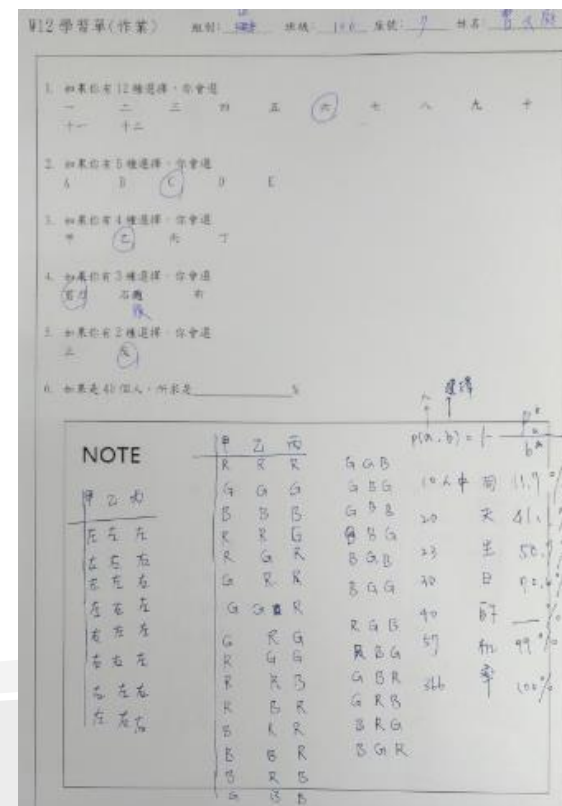 W12 學習單(作業) 組別: 班級: 100 座號: 7 姓名: 曾
1. 如果你有12種選擇，你會選
一 二 三 四 五 六 七 八 九 十
十一 十二
2. 如果你有5種選擇，你會選
A B C D E
3. 如果你有4種選擇，你會選
甲 乙 丙 丁
4. 如果你有3種選擇，你會選
剪刀 石頭 布
5. 如果你有2種選擇，你會選
正 反
6. 如果是40個人，所求是 %
NOTE
甲 乙 丙
左 左 左
左 左 右
右 左 左
左 右 左
右 左 右
右 右 左
右 左 右
左 右 右
甲 乙 丙
R R R
G G G
B B B
R R G
R G R
G R R
G G R
G R G
R G G
R R B
R B R
B R R
B B R
B R B
G B B
G G B
G B G
G B B
B B G
B G B
B G G
R G B
R B G
G B R
G R B
B R G
B G R
人 選擇
P(a, b) = 1-
10人中 同 11.7%
20 天 41.1%
23 生 50.7%
30 日 70.6%
40 的 %
57 机 99%
366 率 100%